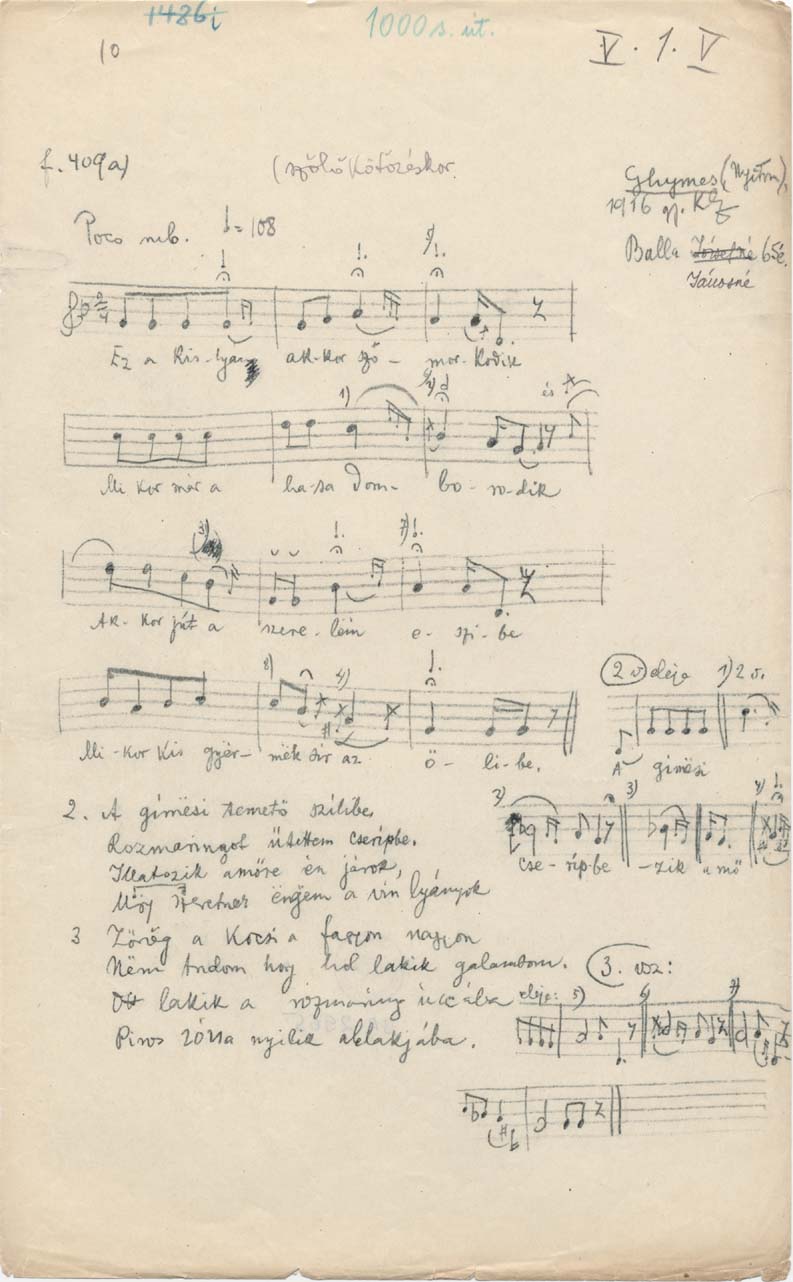 1486i
1000 s. út.
10
V. 1. V
f. 409(a)
(szőlő kötözéskor.
Ghymes, (Nyitra),
1916 gy. KZ
Balla Józsefné 65é.
Jánosné
Poco rub. ♩= 108
Ez a kis-lyán ak-kor szo- mor-kodik
Mi kor már a ha-sa Dom- bo- ro-dik
és
Ak- kor jut a szere-lëm e- szi-be
Mi-kor kis gyër- mëk sir az ö- li-be.
2 v. eleje 1) 2 v.
A gimësi
2. A gimësi temető szilibe,
Rozmaringot ütettem cseripbe.
Illatozik amőre én járok,
Mëg szeretnek ëngëm a vin lyányok
cse- rip-be -zik a mő
3 Zörög a kocsi a fagyon nagyon
Nëm tudom hogy hol lakik galambom.
3. vsz:
Ott lakik a rozmaring uccába
eleje:
Piros rózsa nyilik ablakjába.